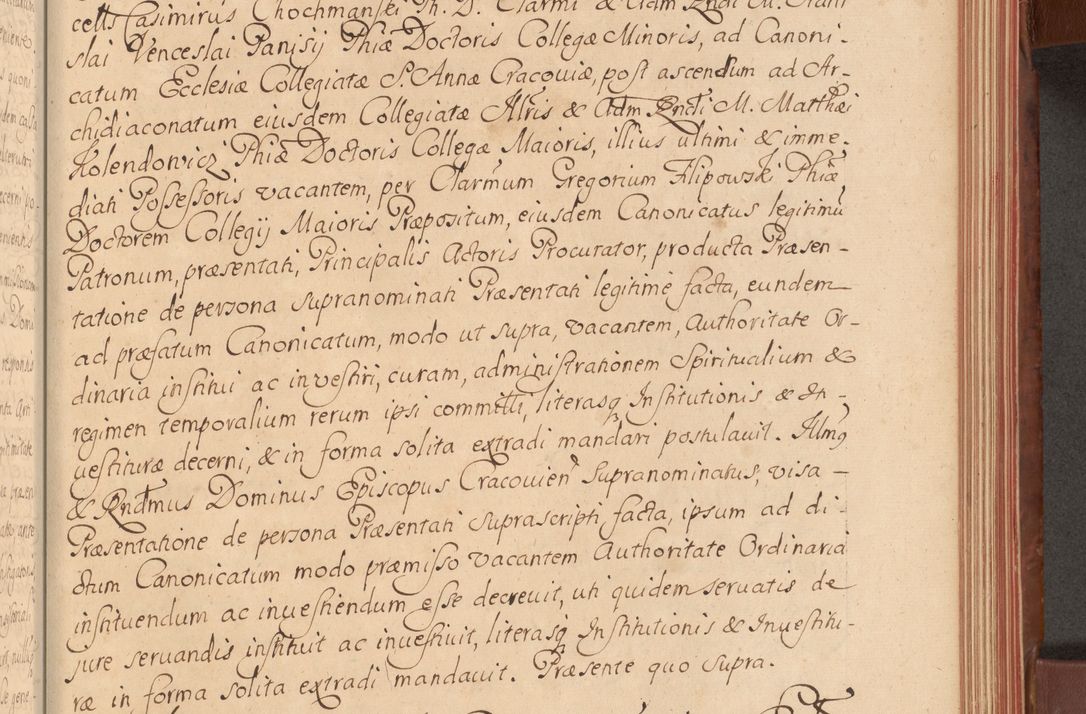 cells Casimirus Chochmanski Ph. D. Clarmi & Adm Rndi M. Stani
slai Venceslai Panisij Phiæ Doctoris Collegæ Minoris, ad Canoni-
catum Ecclesiæ Collegiatæ S. Annæ Cracoviæ, post ascensum ad Ar-
chidiaconatum eiusdem Collegiatæ Illris & Adm Rndi M. Matthæi
Kolendowicz Phiæ Doctoris Collegæ Maioris, illius ultimi & imme-
diati Possessoris vacantem, per Clarmum Gregorium Filipowski Phiæ
Doctorem Collegij Maioris Præpositum, eiusdem Canonicatus legitimũ
Patronum, præsentati, Principalis Actoris Procurator, producta Præsen-
tatione de persona supranominati Præsentati legitime facta, eundem
ad præfatum Canonicatum, modo ut supra, vacantem, Authoritate Or-
dinaria institui ac investiri, curam, administrationem Spiritualium &
regimen temporalium rerum ipsi committi, literasq Institutionis & In-
vestituræ decerni, & in forma solita extradi mandari postulavit. Illmq
& Rndmus Dominus Episcopus Cracovien Supranominatus, visa
Præsentatione de persona Præsentati suprascripti facta, ipsum ad di-
ctum Canonicatum modo præmisso vacantem Authoritate Ordinaria
instituendum ac investiendum esse decrevit, uti quidem servatis de
jure servandis instituit ac investivit, literasq Institutionis & Investitu-
ræ in forma solita extradi mandavit. Præsente quo supra.